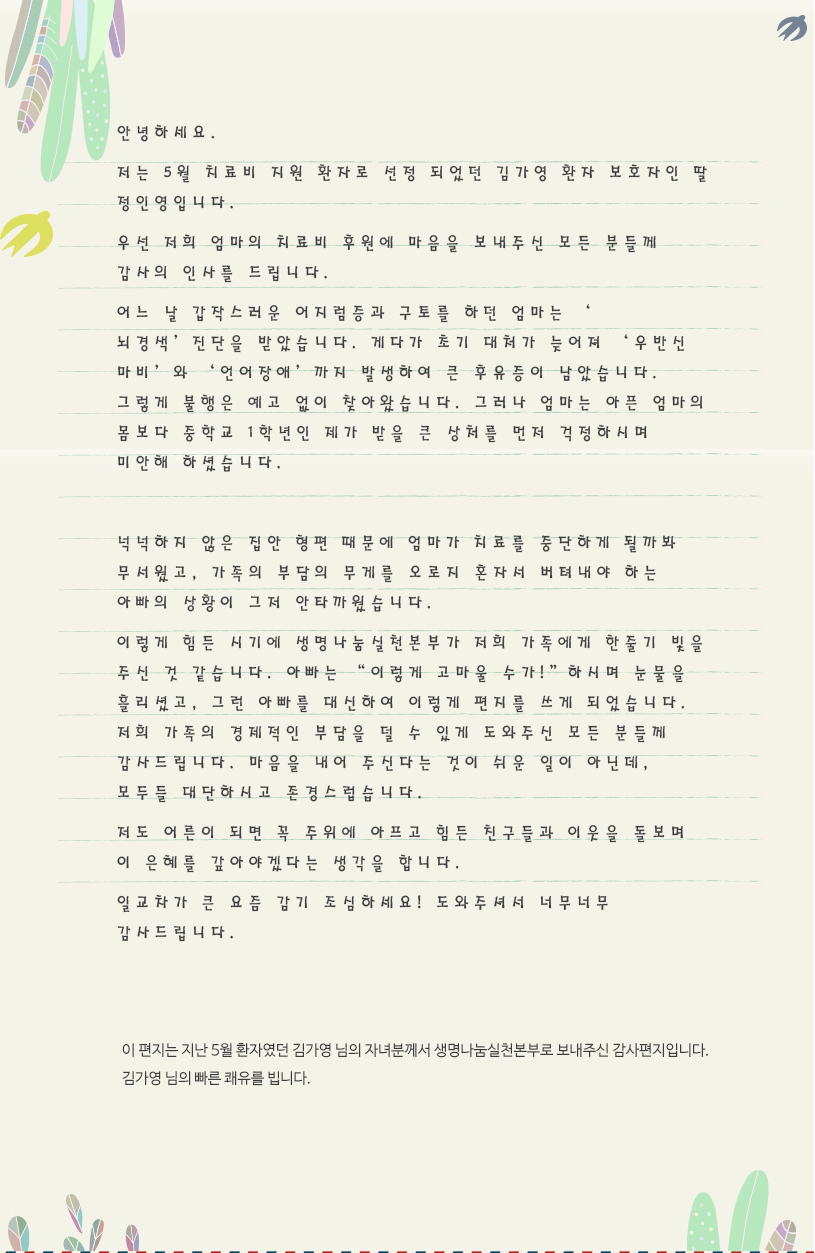 안녕하세요.
저는 5월 치료비 지원 환자로 선정 되었던 김가영 환자 보호자인 딸
정인영입니다.
우선 저희 엄마의 치료비 후원에 마음을 보내주신 모든 분들께
감사의 인사를 드립니다.
어느 날 갑작스러운 어지럼증과 구토를 하던 엄마는 ‘
뇌경색’진단을 받았습니다. 게다가 초기 대처가 늦어져 ‘우반신
마비’와 ‘언어장애’까지 발생하여 큰 후유증이 남았습니다.
그렇게 불행은 예고 없이 찾아왔습니다. 그러나 엄마는 아픈 엄마의
몸보다 중학교 1학년인 제가 받을 큰 상처를 먼저 걱정하시며
미안해 하셨습니다.
넉넉하지 않은 집안 형편 때문에 엄마가 치료를 중단하게 될까봐
무서웠고, 가족의 부담의 무게를 오로지 혼자서 버텨내야 하는
아빠의 상황이 그저 안타까웠습니다.
이렇게 힘든 시기에 생명나눔실천본부가 저희 가족에게 한줄기 빛을
주신 것 같습니다. 아빠는 “이렇게 고마울 수가!”하시며 눈물을
흘리셨고, 그런 아빠를 대신하여 이렇게 편지를 쓰게 되었습니다.
저희 가족의 경제적인 부담을 덜 수 있게 도와주신 모든 분들께
감사드립니다. 마음을 내어 주신다는 것이 쉬운 일이 아닌데,
모두들 대단하시고 존경스럽습니다.
저도 어른이 되면 꼭 주위에 아프고 힘든 친구들과 이웃을 돌보며
이 은혜를 갚아야겠다는 생각을 합니다.
일교차가 큰 요즘 감기 조심하세요! 도와주셔서 너무너무
감사드립니다.
이 편지는 지난 5월 환자였던 김가영 님의 자녀분께서 생명나눔실천본부로 보내주신 감사편지입니다.
김가영 님의 빠른 쾌유를 빕니다.